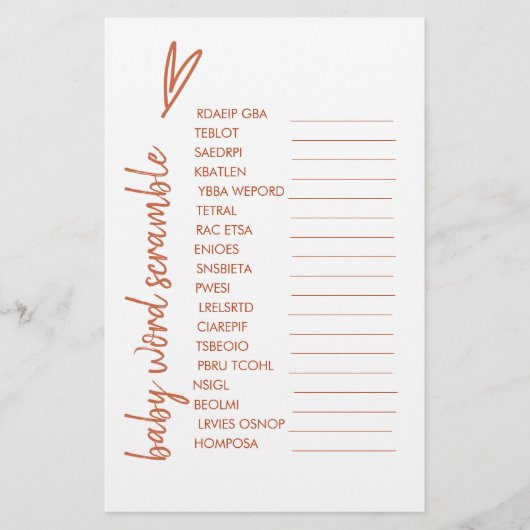 baby word scramble
RDAEIP GBA
TEBLOT
SAEDRPI
KBATLEN
YBBA WEPORD
TETRAL
RAC ETSA
ENIOES
SNSBIETA
PWESI
LRELSRTD
CIAREPIF
TSBEOIO
PBRU TCOHL
NSIGL
BEOLMI
LRVIES OSNOP
HOMPOSA